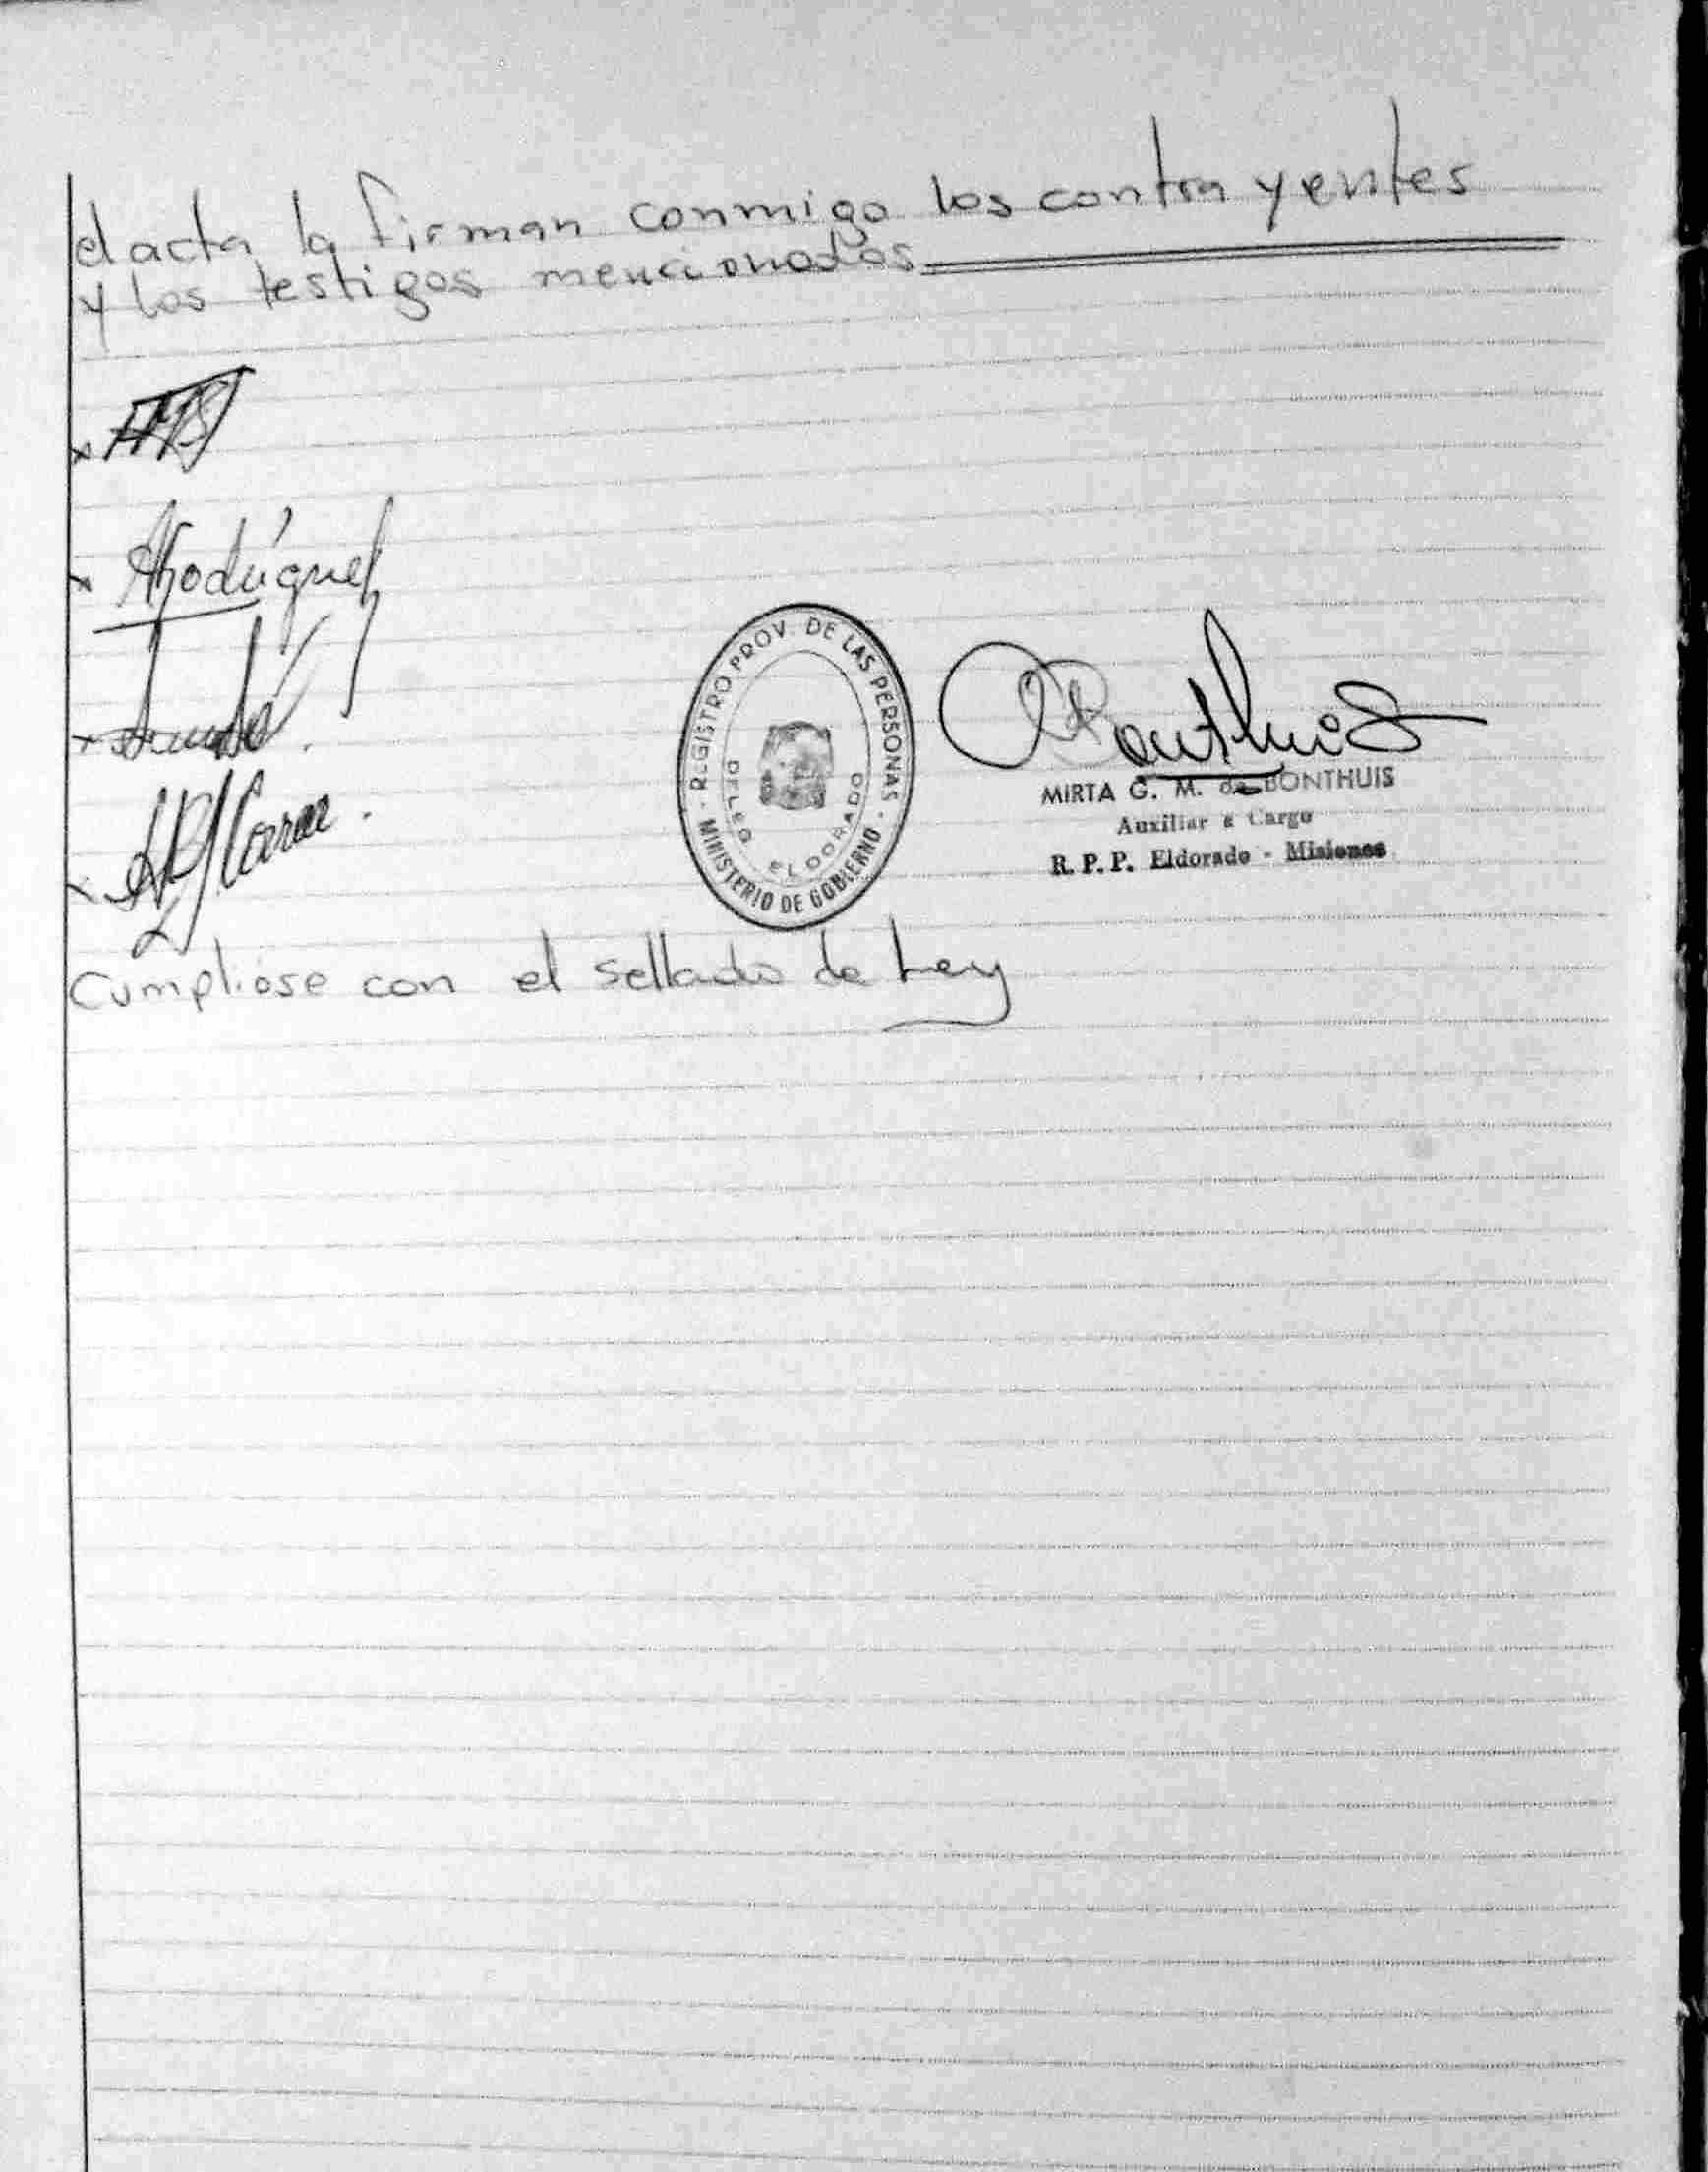 el acta la firman conmigo los contrayentes
y los testigos mencionados
x
x ARodríguez
x
x
REGISTRO PROV. DE LAS PERSONAS
DELEG ELDORADO
- MINISTERIO DE GOBIERNO -
Bonthuis
MIRTA G. M. de BONTHUIS
Auxiliar a Cargo
R. P. P. Eldorado - Misiones
Cumplióse con el sellado de Ley